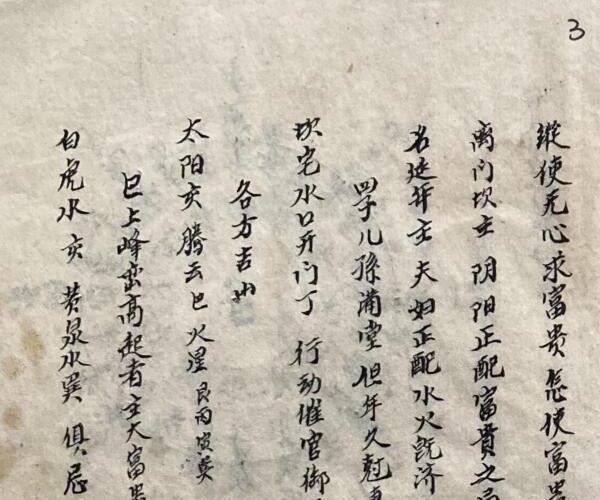 3
縱使无心求富贵怎使富
离门坎主 阴阳正配富貴之
名延年主 夫妇正配水火既济
四子儿孫满堂但年久尅
坎宅水口开门丁 行动催官御
各方吉凶
太阳亥 腾云巳 火星 艮丙寅
巳上峰峦高起者主大富
白虎水 亥 黄泉水巽 俱忌